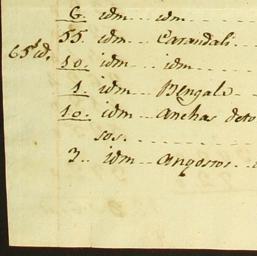 6. idm .. idm .....
55. idm .. Carandali ..
65 id. 10. idm .. idm ....
1. idm .. Bengala ..
10. idm .. anchas de to
sos. ....
3. idm .. angostos ..